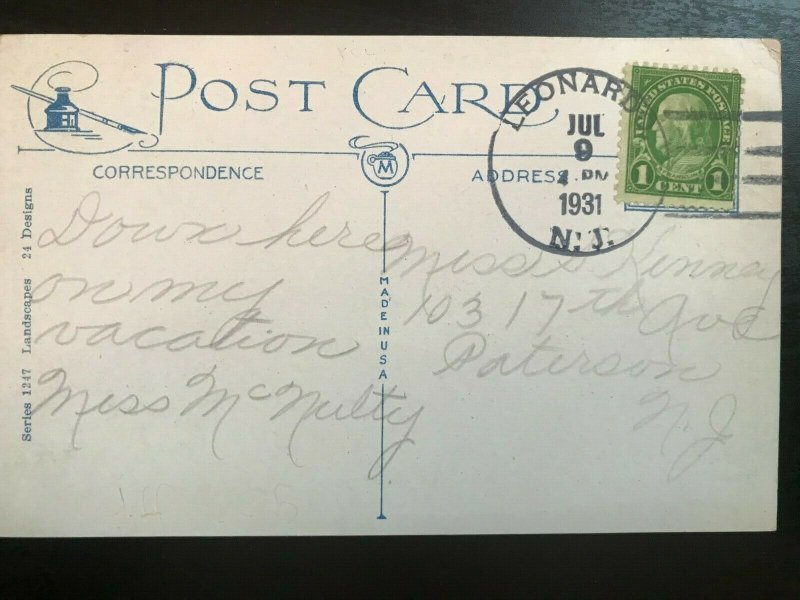 POST CARD
CORRESPONDENCE
ADDRESS
M
LEONARD
JUL
9
PM
1931
N.J.
UNITED STATES POSTAGE
1 CENT 1
Series 1247 Landscapes 24 Designs
MADE IN USA
Down here
on my
vacation
Miss McNulty
Miss Kinney
103 17th Ave
Paterson
N.J.